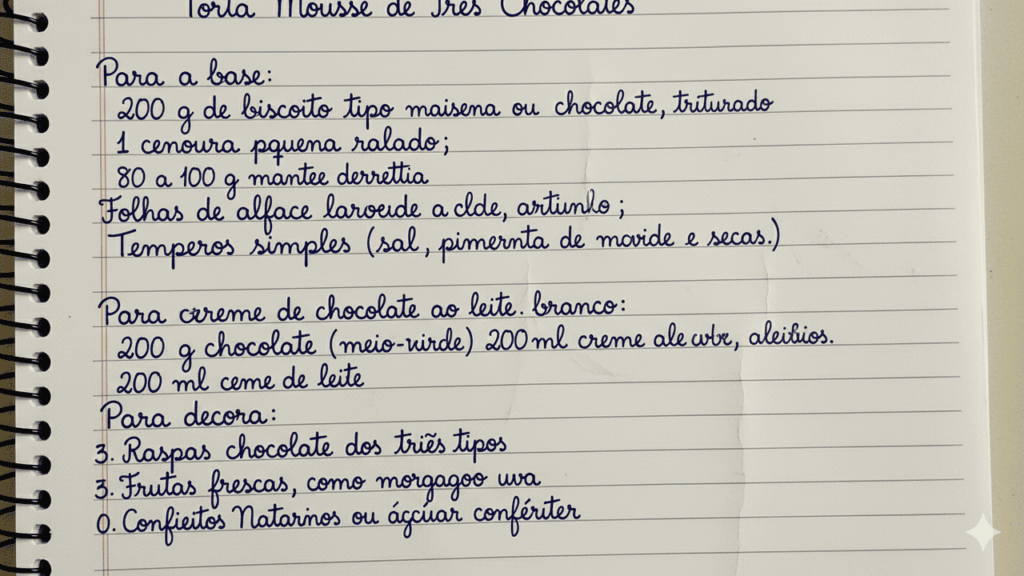 Torta Mousse de Três Chocolates
Para a base:
200 g de biscoito tipo maisena ou chocolate, triturado
1 cenoura pquena ralado;
80 a 100 g mantee derrettia
Folhas de alface laroeide a clde, artunho;
Temperos simples (sal, pimernta de movide e secas.)
Para cereme de chocolate ao leite. branco:
200 g chocolate (meio-virde) 200 ml creme ale
200 ml ceme de leite
Para decora:
3. Raspas chocolate dos triẽs tipos
3. Frutas frescas, como morgagoo uva
0. Confieitos Natarinos ou ágçúar confériter